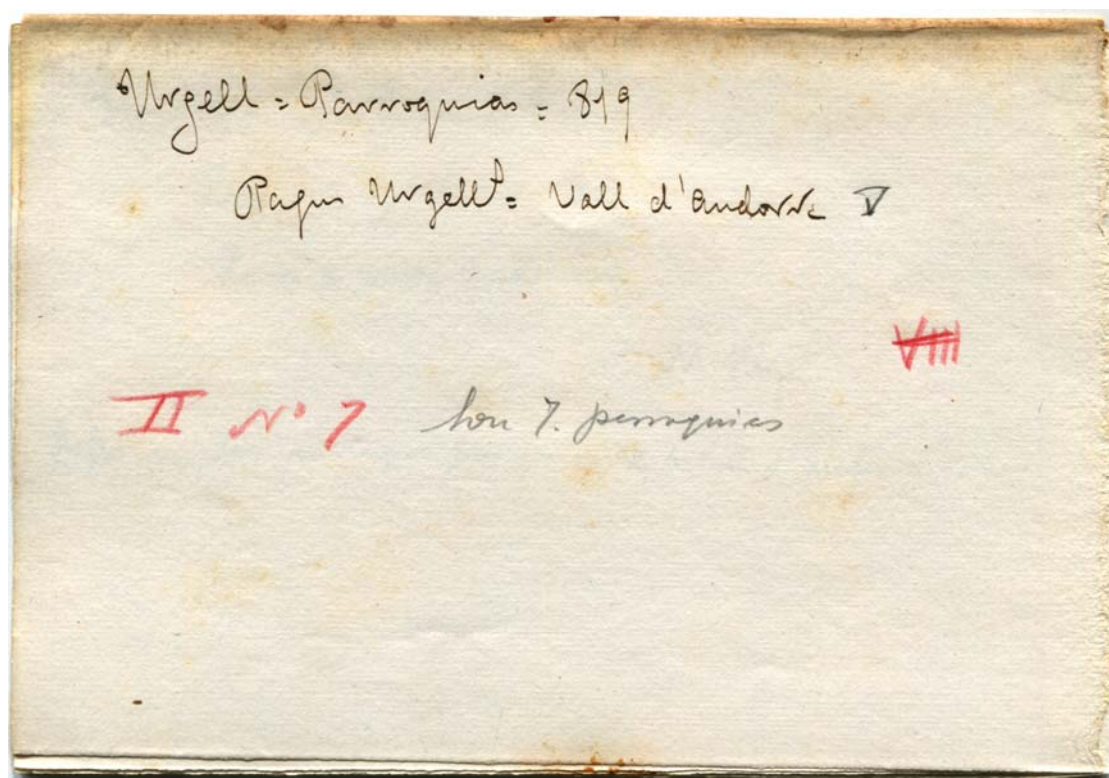 Urgell = Parroquias = 819
Pagus Urgellt = Vall d'Andorra V
VIII
II Nº 7 son 7. parroquias